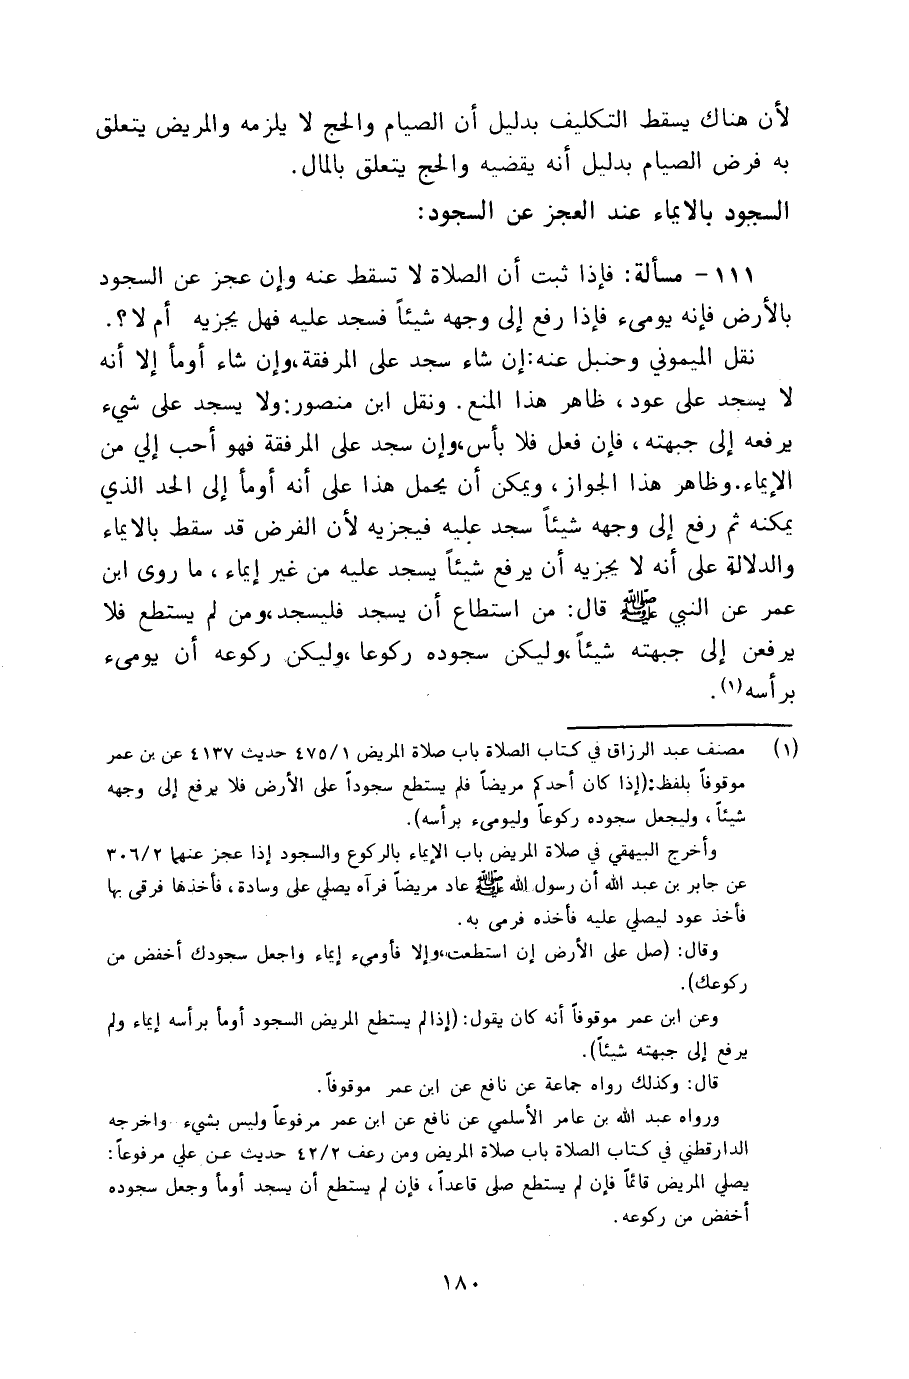 لأن هناك يسقط التكليف بدليل أن الصيام والحج لا يلزمه والمريض يتعلق
به فرض الصيام بدليل أنه يقضيه والحج يتعلق بالمال.
السجود بالايماء عند العجز عن السجود:
١١١ - مسألة: فإذا ثبت أن الصلاة لا تسقط عنه وإن عجز عن السجود
بالأرض فإنه يومىء فإذا رفع إلى وجهه شيئاً فسجد عليه فهل يجزيه أم لا؟.
نقل الميموني وحنبل عنه:إن شاء سجد على المرفقة،وإن شاء أومأ إلا أنه
لا يسجد على عود، ظاهر هذا المنع. ونقل ابن منصور:ولا يسجد على شيء
يرفعه إلى جبهته، فإن فعل فلا بأس،وإن سجد على المرفقة فهو أحب إلي من
الإيماء.وظاهر هذا الجواز، ويمكن أن يحمل هذا على أنه أومأ إلى الحد الذي
يمكنه ثم رفع إلى وجهه شيئاً سجد عليه فيجزيه لأن الفرض قد سقط بالايماء
والدلالة على أنه لا يجزيه أن يرفع شيئاً يسجد عليه من غير إيماء، ما روى ابن
عمر عن النبي ﷺ قال: من استطاع أن يسجد فليسجد،ومن لم يستطع فلا
يرفعن إلى جبهته شيئاً،وليكن سجوده ركوعا ،وليكن ركوعه أن يومىء
برأسه(١).
(١) مصنف عبد الرزاق في كتاب الصلاة باب صلاة المريض ٤٧٥/١ حديث ٤١٣٧ عن بن عمر
موقوفاً بلفظ:(إذا كان أحدكم مريضاً فلم يستطع سجوداً على الأرض فلا يرفع إلى وجهه
شيئاً، وليجعل سجوده ركوعاً وليومىء برأسه).
وأخرج البيهقي في صلاة المريض باب الإيماء بالركوع والسجود إذا عجز عنهما ٣٠٦/٢
عن جابر بن عبد الله أن رسول الله ﷺ عاد مريضاً فرآه يصلي على وسادة، فأخذها فرقى بها
فأخذ عود ليصلي عليه فأخذه فرمى به.
وقال: (صل على الأرض إن استطعت،وإلا فأوميء إيماء واجعل سجودك أخفض من
ركوعك).
وعن ابن عمر موقوفاً أنه كان يقول: (إذالم يستطع المريض السجود أومأ برأسه إيماء ولم
يرفع إلى جبهته شيئاً).
قال: وكذلك رواه جماعة عن نافع عن ابن عمر موقوفاً.
ورواه عبد الله بن عامر الأسلمي عن نافع عن ابن عمر مرفوعاً وليس بشيء واخرجه
الدارقطني في كتاب الصلاة باب صلاة المريض ومن رعف ٤٢/٢ حديث عن علي مرفوعاً:
يصلي المريض قائماً فإن لم يستطع صلى قاعداً، فإن لم يستطع أن يسجد أومأ وجعل سجوده
أخفض من ركوعه.
١٨٠